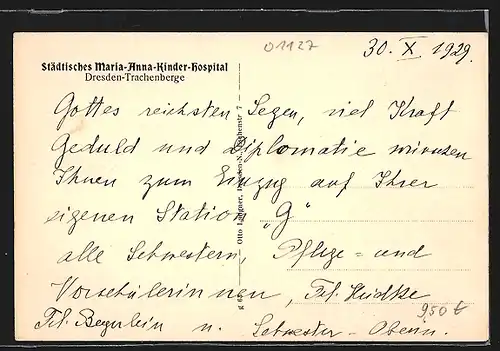 01127
30. X. 1929.
Städtisches Maria-Anna-Kinder-Hospital
Dresden-Trachenberge
Gottes reichsten Segen, viel Kraft
Geduld und Diplomatie wünschen
Ihnen zum Einzug auf Ihrer
eigenen Station „G"
alle Schwestern, Pflege- und
Vorschülerinnen,
Beyerlein u. Schwester Oberin.
9,50 €
Otto Dresden-N. 7